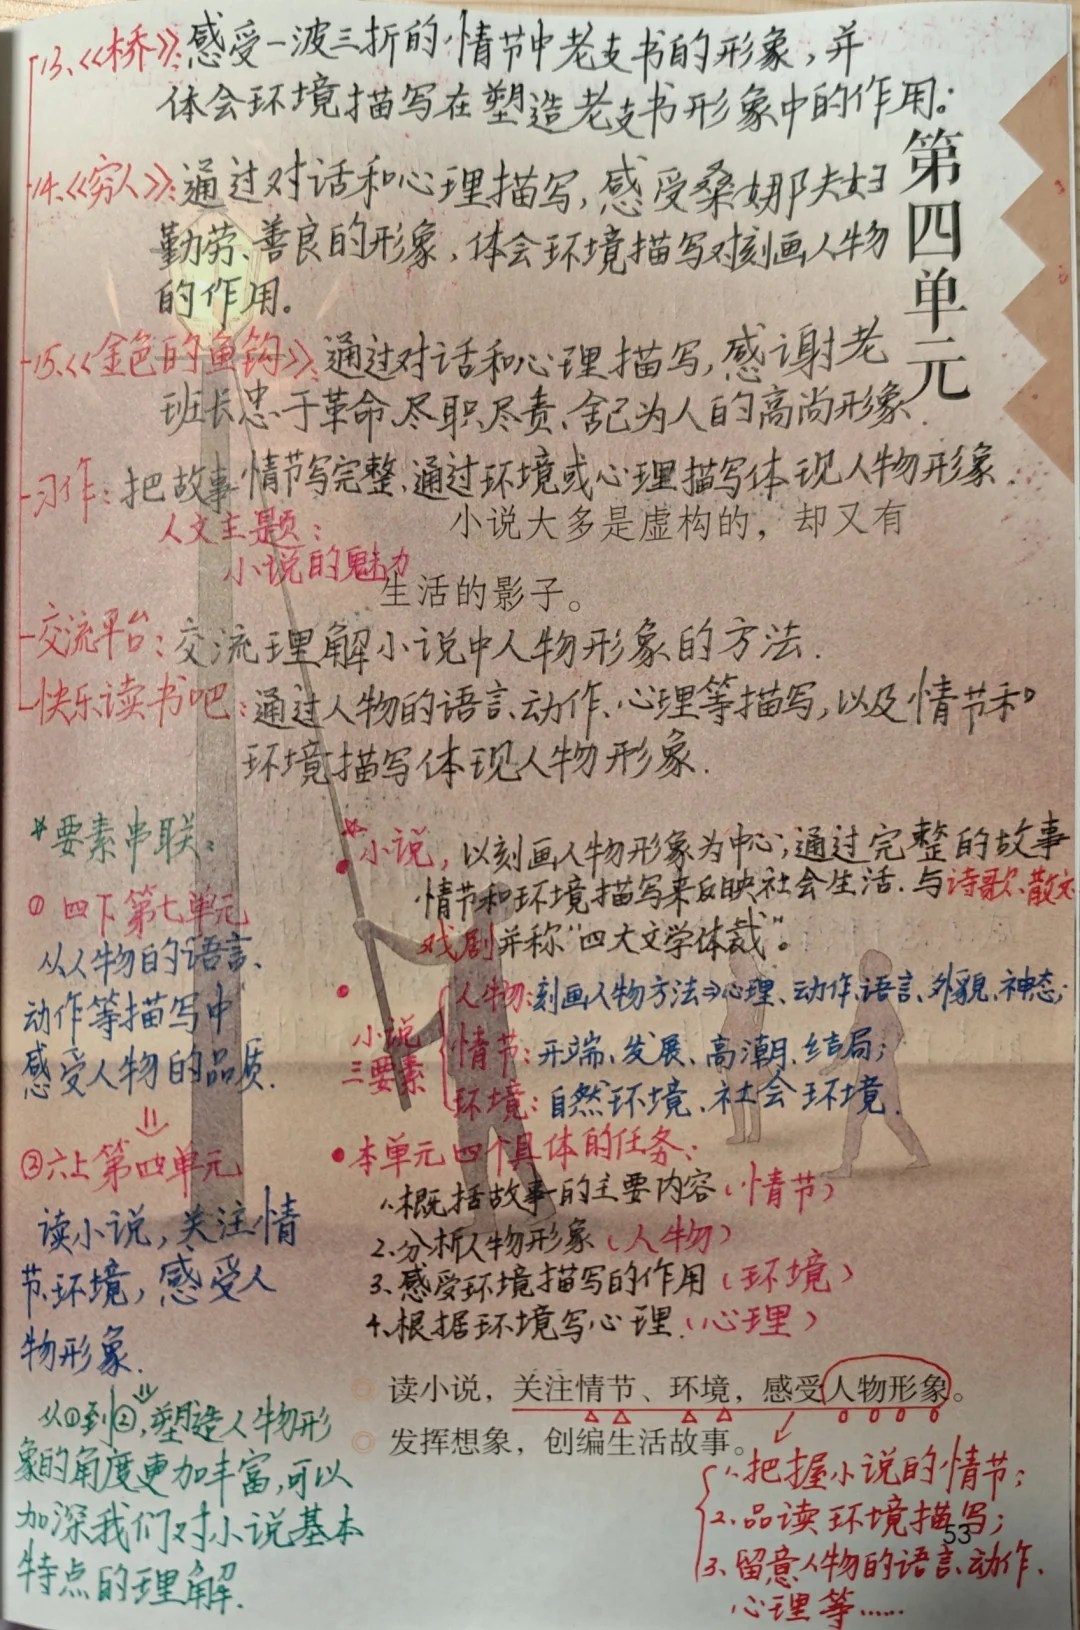 13、《桥》：感受一波三折的情节中老支书的形象，并
体会环境描写在塑造老支书形象中的作用。
第四单元
14、《穷人》：通过对话和心理描写，感受桑娜夫妇
勤劳、善良的形象，体会环境描写对刻画人物
的作用。
15、《金色的鱼钩》：通过对话和心理描写，感谢老
班长忠于革命、尽职尽责、舍己为人的高尚形象.
习作：把故事情节写完整、通过环境或心理描写体现人物形象.
人文主题：
小说的魅力
小说大多是虚构的，却又有
生活的影子。
交流平台：交流理解小说中人物形象的方法.
快乐读书吧：通过人物的语言、动作、心理等描写，以及情节和
环境描写体现人物形象.
*要素串联：
① 四下第七单元
从人物的语言、
动作等描写中
感受人物的品质.
②六上第四单元
读小说，关注情
节、环境，感受人
物形象.
从①到②，塑造人物形
象的角度更加丰富，可以
加深我们对小说基本
特点的理解.
*小说，以刻画人物形象为中心；通过完整的故事
情节和环境描写来反映社会生活.与诗歌、散文、
戏剧并称“四大文学体裁”。
小说
三要素
人物：刻画人物方法⇒心理、动作、语言、外貌、神态；
情节：开端、发展、高潮、结局；
环境：自然环境、社会环境.
本单元四个具体的任务：
1.概括故事的主要内容（情节）
2.分析人物形象（人物）
3.感受环境描写的作用（环境）
4.根据环境写心理.（心理）
◎ 读小说，关注情节、环境，感受人物形象。
◎ 发挥想象，创编生活故事。
1.把握小说的情节；
2.品读环境描写；
53
3.留意人物的语言、动作、
心理等……